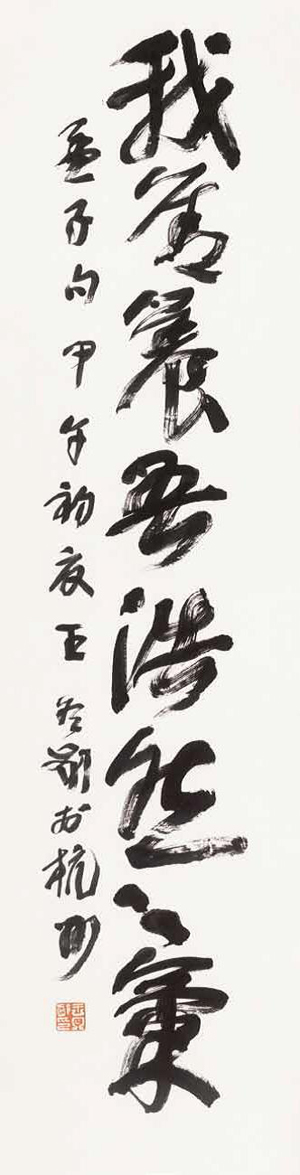 我善養吾浩然之氣
孟子句甲午初夏王冬齡於杭州